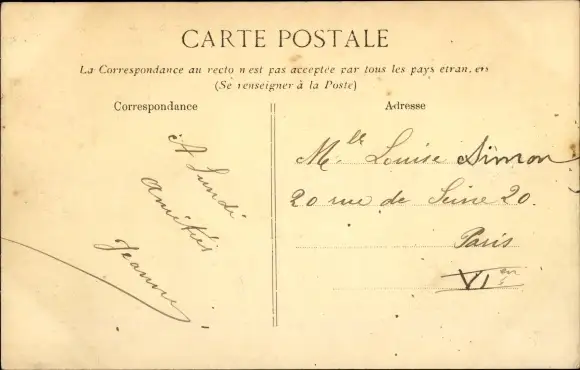 CARTE POSTALE
La Correspondance au recto n'est pas acceptée par tous les pays étrangers
(Se renseigner à la Poste)
Correspondance
A Lundi
Amitiés
Jeanne
Adresse
Mlle Louise Simon
20 rue de Seine 20.
Paris
VIen